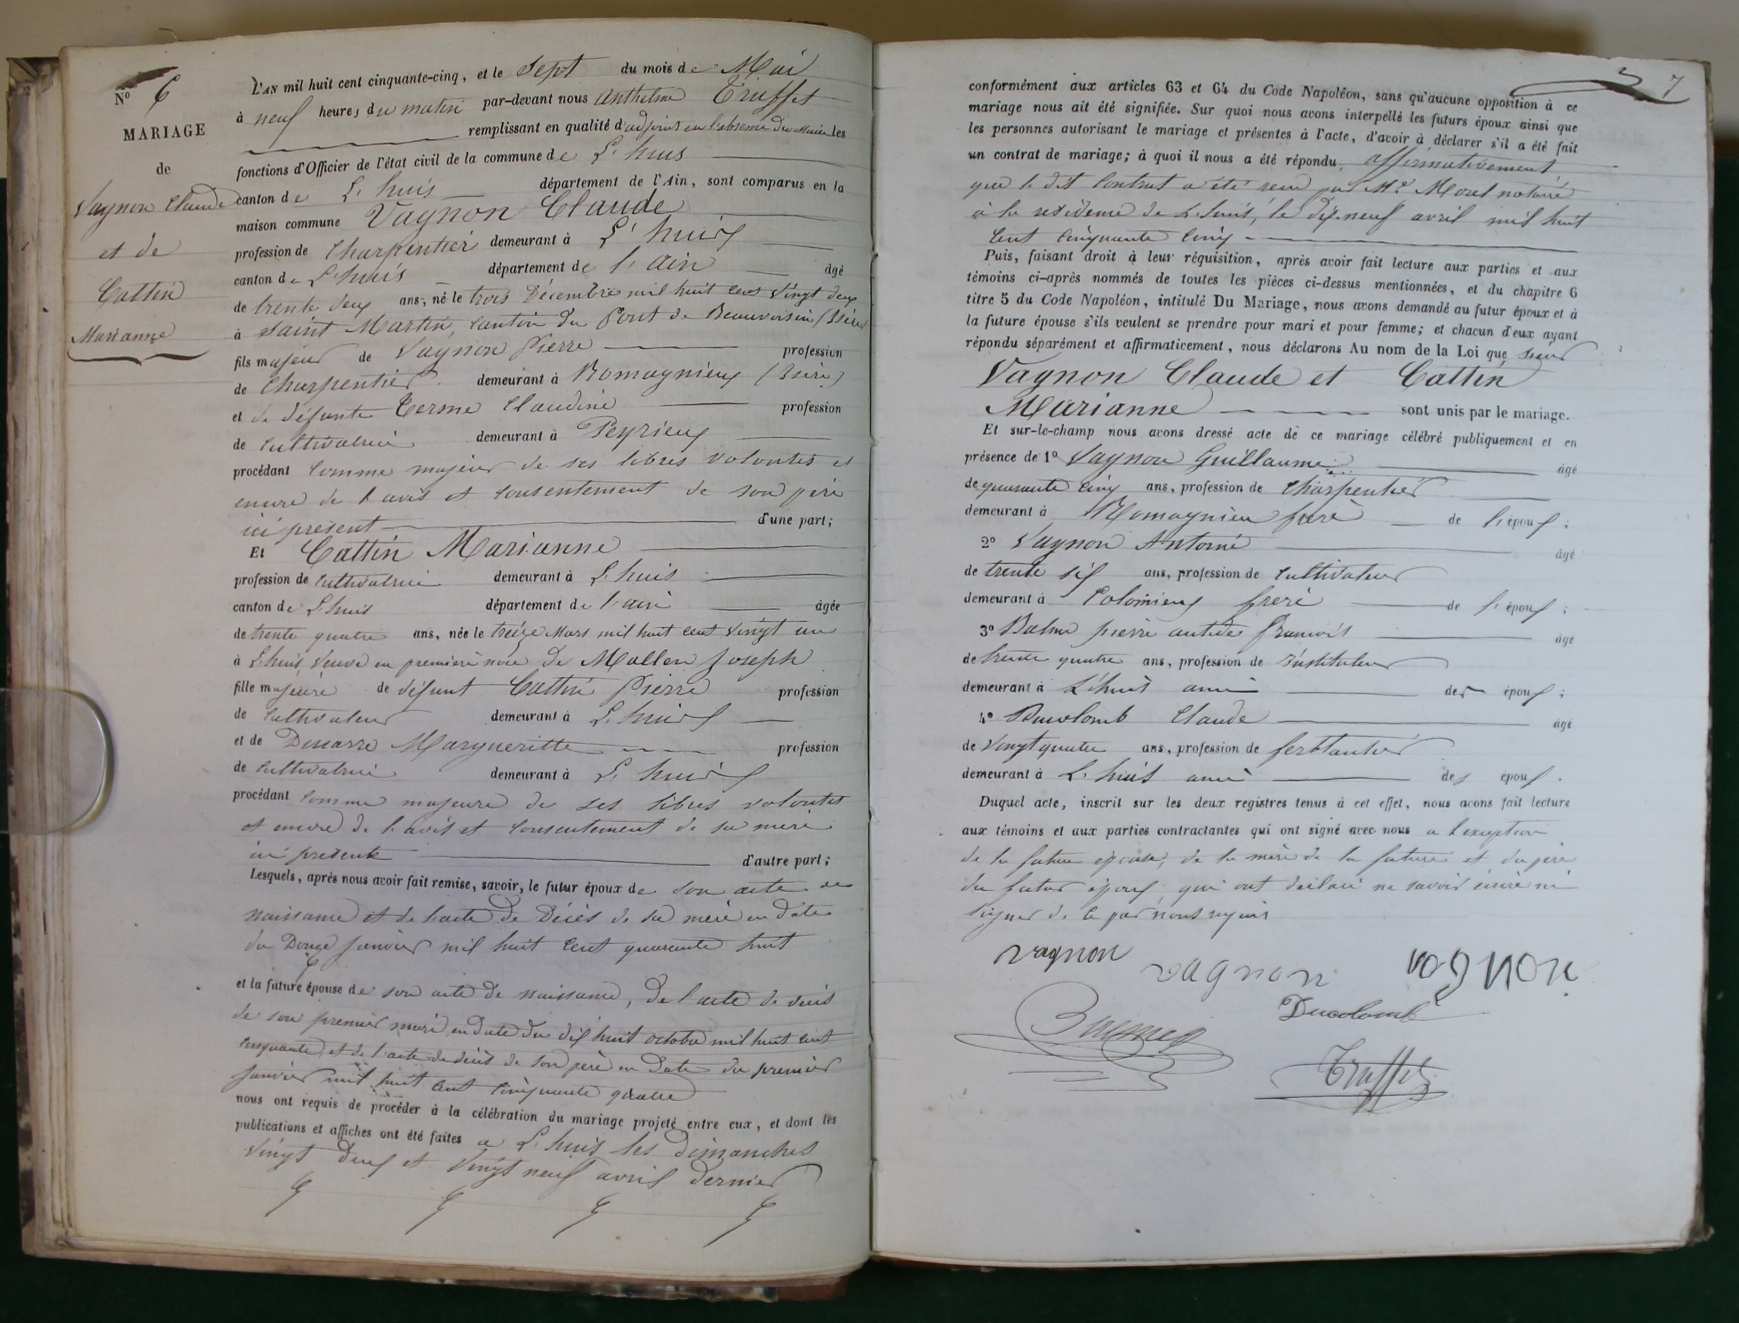 N° 6
MARIAGE
de
Vagnon Claude
et de
Cattin
Marianne
L'AN mil huit cent cinquante-cinq, et le Sept du mois de Mai
à neuf heures du matin par-devant nous Anthelme Truffet
remplissant en qualité d'adjoint en l'absence du Maire les
fonctions d'Officier de l'état civil de la commune de L'huis
canton de L'huis département de l'Ain, sont comparus en la
maison commune Vagnon Claude
profession de Charpentier demeurant à L'huis
canton de L'huis département de l'ain âgé
de trente deux ans, né le trois Décembre mil huit cent vingt deux
à Saint Martin, canton du Pont de Beauvoisin (Isère)
fils majeur de Vagnon Pierre profession
de Charpentier demeurant à Romagnieux (Isère)
et de défunte Terme Claudine profession
de cultivatrice demeurant à Peyrieux
procédant comme majeur de ses libres volontés et
encore de l'avis et consentement de son père
ici présent d'une part;
Et Cattin Marianne
profession de cultivatrice demeurant à L'huis
canton de L'huis département de l'ain âgée
de trente quatre ans, née le treize Mars mil huit cent vingt un
à L'huis veuve en première noce de Mollen Joseph
fille majeure de défunt Cattin Pierre profession
de cultivateur demeurant à L'huis
et de Ducarre Margueritte profession
de cultivatrice demeurant à L'huis
procédant comme majeure de ses libres volontés
et encore de l'avis et consentement de sa mère
ici présente d'autre part;
Lesquels, après nous avoir fait remise, savoir, le futur époux de son acte de
naissance et de l'acte de Décès de sa mère en date
du Douze Janvier mil huit cent quarante huit
et la future épouse de son acte de naissance, de l'acte de décès
de son premier mari en date du dix huit octobre mil huit cent
cinquante, et de l'acte de décès de son père en date du premier
janvier mil huit cent cinquante quatre
nous ont requis de procéder à la célébration du mariage projeté entre eux, et dont les
publications et affiches ont été faites à L'huis les dimanches
vingt deux et vingt neuf avril dernier
7
conformément aux articles 63 et 64 du Code Napoléon, sans qu'aucune opposition à ce
mariage nous ait été signifiée. Sur quoi nous avons interpellé les futurs époux ainsi que
les personnes autorisant le mariage et présentes à l'acte, d'avoir à déclarer s'il a été fait
un contrat de mariage; à quoi il nous a été répondu affirmativement
que le dit Contrat a été reçu par Me Morel notaire
à la résidence de L'huis, le dix-neuf avril mil huit
cent cinquante cinq
Puis, faisant droit à leur réquisition, après avoir fait lecture aux parties et aux
témoins ci-après nommés de toutes les pièces ci-dessus mentionnées, et du chapitre 6
titre 5 du Code Napoléon, intitulé Du Mariage, nous avons demandé au futur époux et à
la future épouse s'ils veulent se prendre pour mari et pour femme; et chacun d'eux ayant
répondu séparément et affirmativement, nous déclarons Au nom de la Loi que
Vagnon Claude et Cattin
Marianne sont unis par le mariage.
Et sur-le-champ nous avons dressé acte de ce mariage célébré publiquement et en
présence de 1° Vagnon Guillaume âgé
de quarante cinq ans, profession de Charpentier
demeurant à Romagnieu frère de l'époux;
2° Vagnon Antoine âgé
de trente six ans, profession de cultivateur
demeurant à Colomieux frère de l'époux;
3° Balme pierre antide françois âgé
de trente quatre ans, profession de Instituteur
demeurant à L'huis ami des époux;
4° Ducolomb Claude âgé
de vingt quatre ans, profession de ferblantier
demeurant à L'huis ami des époux.
Duquel acte, inscrit sur les deux registres tenus à cet effet, nous avons fait lecture
aux témoins et aux parties contractantes qui ont signé avec nous à l'exception
de la future épouse, de la mère de la future et du père
du futur époux qui ont déclaré ne savoir écrire ni
signer de ce par nous requis
Vagnon
vagnon
vagnon
Ducolomb
Truffet